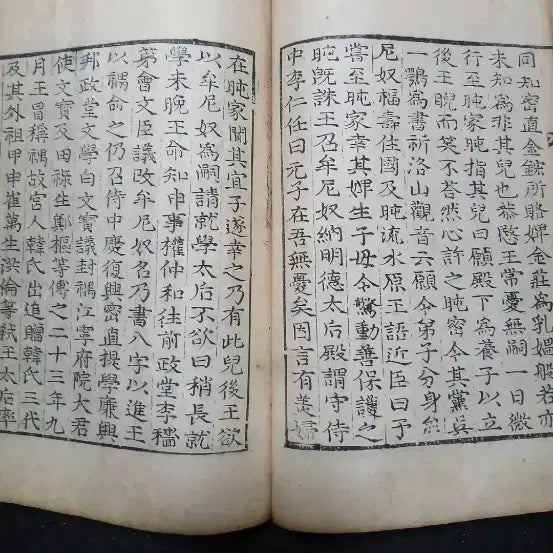 同知密直金鋐所賂婢金莊爲乳媼般若亦
未知爲非其兒也恭愍王常憂無嗣一日微
行至旽家旽指其兒曰願殿下爲養子以立
後王睨而笑不荅然心許之旽密令其黨吳
一鶚爲書祈洛山觀音云願令弟子分身牟
尼奴福壽住國及旽流水原王語近臣曰予
嘗至旽家幸其婢生子毋令驚動善保護之
旽旣誅王召牟尼奴納明德太后殿謂守侍
中李仁任曰元子在吾無憂矣因言有美婦
在旽家聞其宜子遂幸之乃有此兒後王欲
以牟尼奴爲嗣請就學太后不欲曰稍長就
學未晚王命知申事權仲和往前政堂李穡
第會文臣議改牟尼奴名乃書八字以進王
以禑命之仍召侍中慶復興密直提學廉興
邦政堂文學白文寶議封禑江寧府院大君
使文寶及田祿生鄭樞等傅之二十三年九
月王冒稱禑故宮人韓氏出追贈韓氏三代
及其外祖甲申崔萬生洪倫等弑王太后率